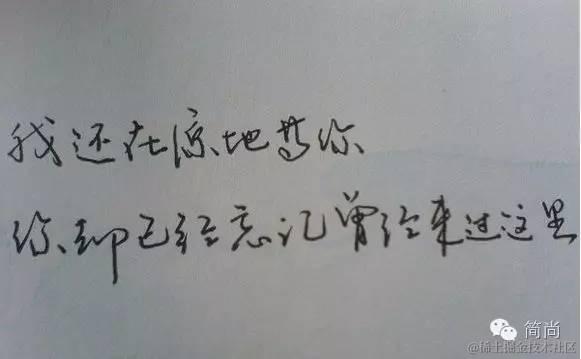 我还在原地等你
你却已经忘记曾经来过这里
简尚
@稀土掘金技术社区